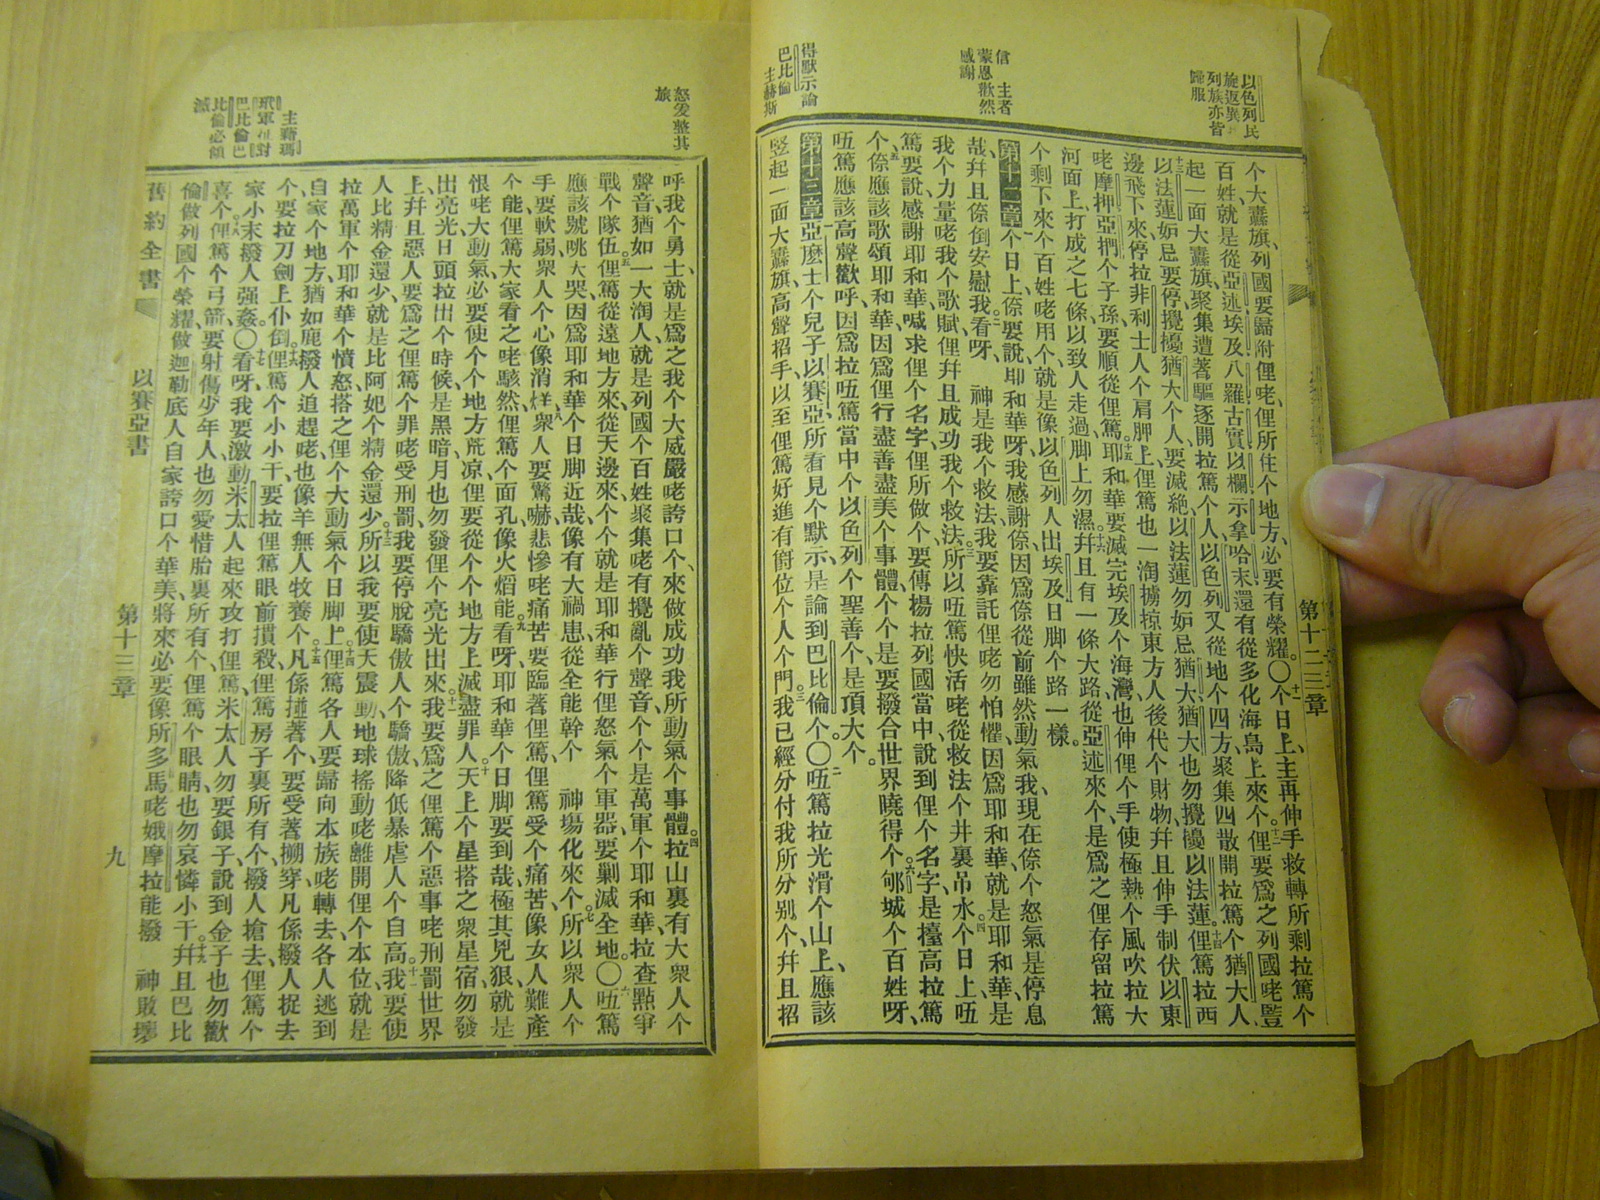 以色列民
旋返異
列族亦皆
歸服
信主者
蒙恩歡然
感謝
得默示論
巴比倫
主赫斯
個大纛旗、列國要歸附俚咾、俚所住個地方、必要有榮耀。〇十一個日上、主再伸手救轉所剩拉篤個
百姓、就是從亞述埃及八羅古實以攔示拿哈末、還有從多化海島上來個。十二俚要爲之列國咾豎
起一面大纛旗、聚集遭著驅逐開拉篤個人、以色列又從地個四方、聚集四散開拉篤個猶大人、
十三以法蓮妬忌要停、攪擾猶大個人、要滅絕、以法蓮勿妬忌猶大、猶大也勿攪擾以法蓮。十四俚篤拉西
邊飛下來、停拉非利士人個肩胛上、俚篤也一淘擄掠東方人後代個財物、幷且伸手制伏以東
咾摩押、亞捫個子孫、要順從俚篤。十五耶和華要滅完埃及個海灣、也伸俚個手、使極熱個風吹拉大
河面上、打成之七條、以致人走過、脚上勿濕。十六幷且有一條大路、從亞述來個、是爲之俚存留拉篤
個剩下來個百姓咾用個、就是像以色列人出埃及日脚個路一樣。
第十二章 一個日上、倷要說、耶和華呀、我感謝倷、因爲倷從前雖然動氣我、現在倷個怒氣是停息
哉、幷且倷倒安慰我。二看呀、神是我個救法、我要靠託俚咾勿怕懼、因爲耶和華、就是耶和華、是
我個力量咾我個歌賦、俚幷且成功我個救法。三所以㕶篤快活咾從救法個井裏吊水。四個日上㕶
篤要說、感謝耶和華、喊求俚個名字、俚所做個、要傳揚拉列國當中、說到俚個名字、是擡高拉篤
個。五倷應該歌頌耶和華、因爲俚行盡善盡美個事體、個個是要撥合世界曉得個。六郇城個百姓呀、
㕶篤應該高聲歡呼、因爲拉㕶篤當中個以色列個聖善個、是頂大個。
第十三章 一亞麽士個兒子以賽亞、所看見個默示、是論到巴比倫個。〇二㕶篤拉光滑個山上、應該
竪起一面大纛旗、高聲招手、以至俚篤好進有爵位個人個門。三我已經分付我所分別個、幷且招
第十二三章
怒爰整其
旅
主藉瑪
玳軍征對
巴比倫巴
比倫必傾
滅
呼我個勇士、就是爲之我個大威嚴咾誇口個、來做成功我所動氣個事體。四拉山裏有大衆人個
聲音、猶如一大淘人、就是列國個百姓聚集咾有攪亂個聲音、個個是萬軍個耶和華、拉查點爭
戰個隊伍。五俚篤從遠地方來、從天邊來、個個就是耶和華、行俚怒氣個軍器、要剿滅全地。〇六㕶篤
應該號咷大哭、因爲耶和華個日脚近哉、像有大禍患、從全能幹個神場化來個。七所以衆人個
手要軟弱、衆人個心像消烊、衆人要驚嚇、悲慘咾痛苦、要臨著俚篤、俚篤受個痛苦、像女人難產
個能、俚篤大家看之咾駭然、俚篤個面孔像火熖能。九看呀、耶和華個日脚要到哉、極其兇狠、就是
恨咾大動氣、必要使個個地方荒凉、俚要從個個地方上、滅盡罪人。十天上個星搭之衆星宿、勿發
出亮光、日頭拉出個時候、是黑暗、月也勿發俚個亮光出來。十一我要爲之俚篤個惡事咾刑罰世界
上、幷且惡人、要爲之俚篤個罪咾受刑罰、我要停脫驕傲人個驕傲、降低暴虐人個自高。十二我要使
人比精金還少、就是比阿妃個精金還少。十三所以我要使天震動、地球搖動咾離開俚個本位、就是
拉萬軍個耶和華個憤怒、搭之俚個大動氣個日脚上。十四俚篤各人要歸向本族咾轉去、各人逃到
自家個地方、猶如鹿撥人追趕咾、也像羊無人牧養個。十五凡係撞著個、要受著搠穿、凡係撥人捉去
個、要拉刀劍上仆倒。十六俚篤個小小干、要拉俚篤眼前摜殺、俚篤房子裏所有個、撥人搶去、俚篤個
家小、末撥人强姦。〇十七看呀、我要激動米太人起來、攻打俚篤、米太人勿要銀子、說到金子也勿歡
喜個。十八俚篤個弓箭、要射傷少年人、也勿愛惜胎裏所有個、俚篤個眼睛、也勿哀憐小干。十九幷且巴比
倫做列國個榮耀、做迦勒底人自家誇口個華美、將來必要像所多馬咾娥摩拉能、撥神敗壞
舊約全書 以賽亞書 第十三章 九